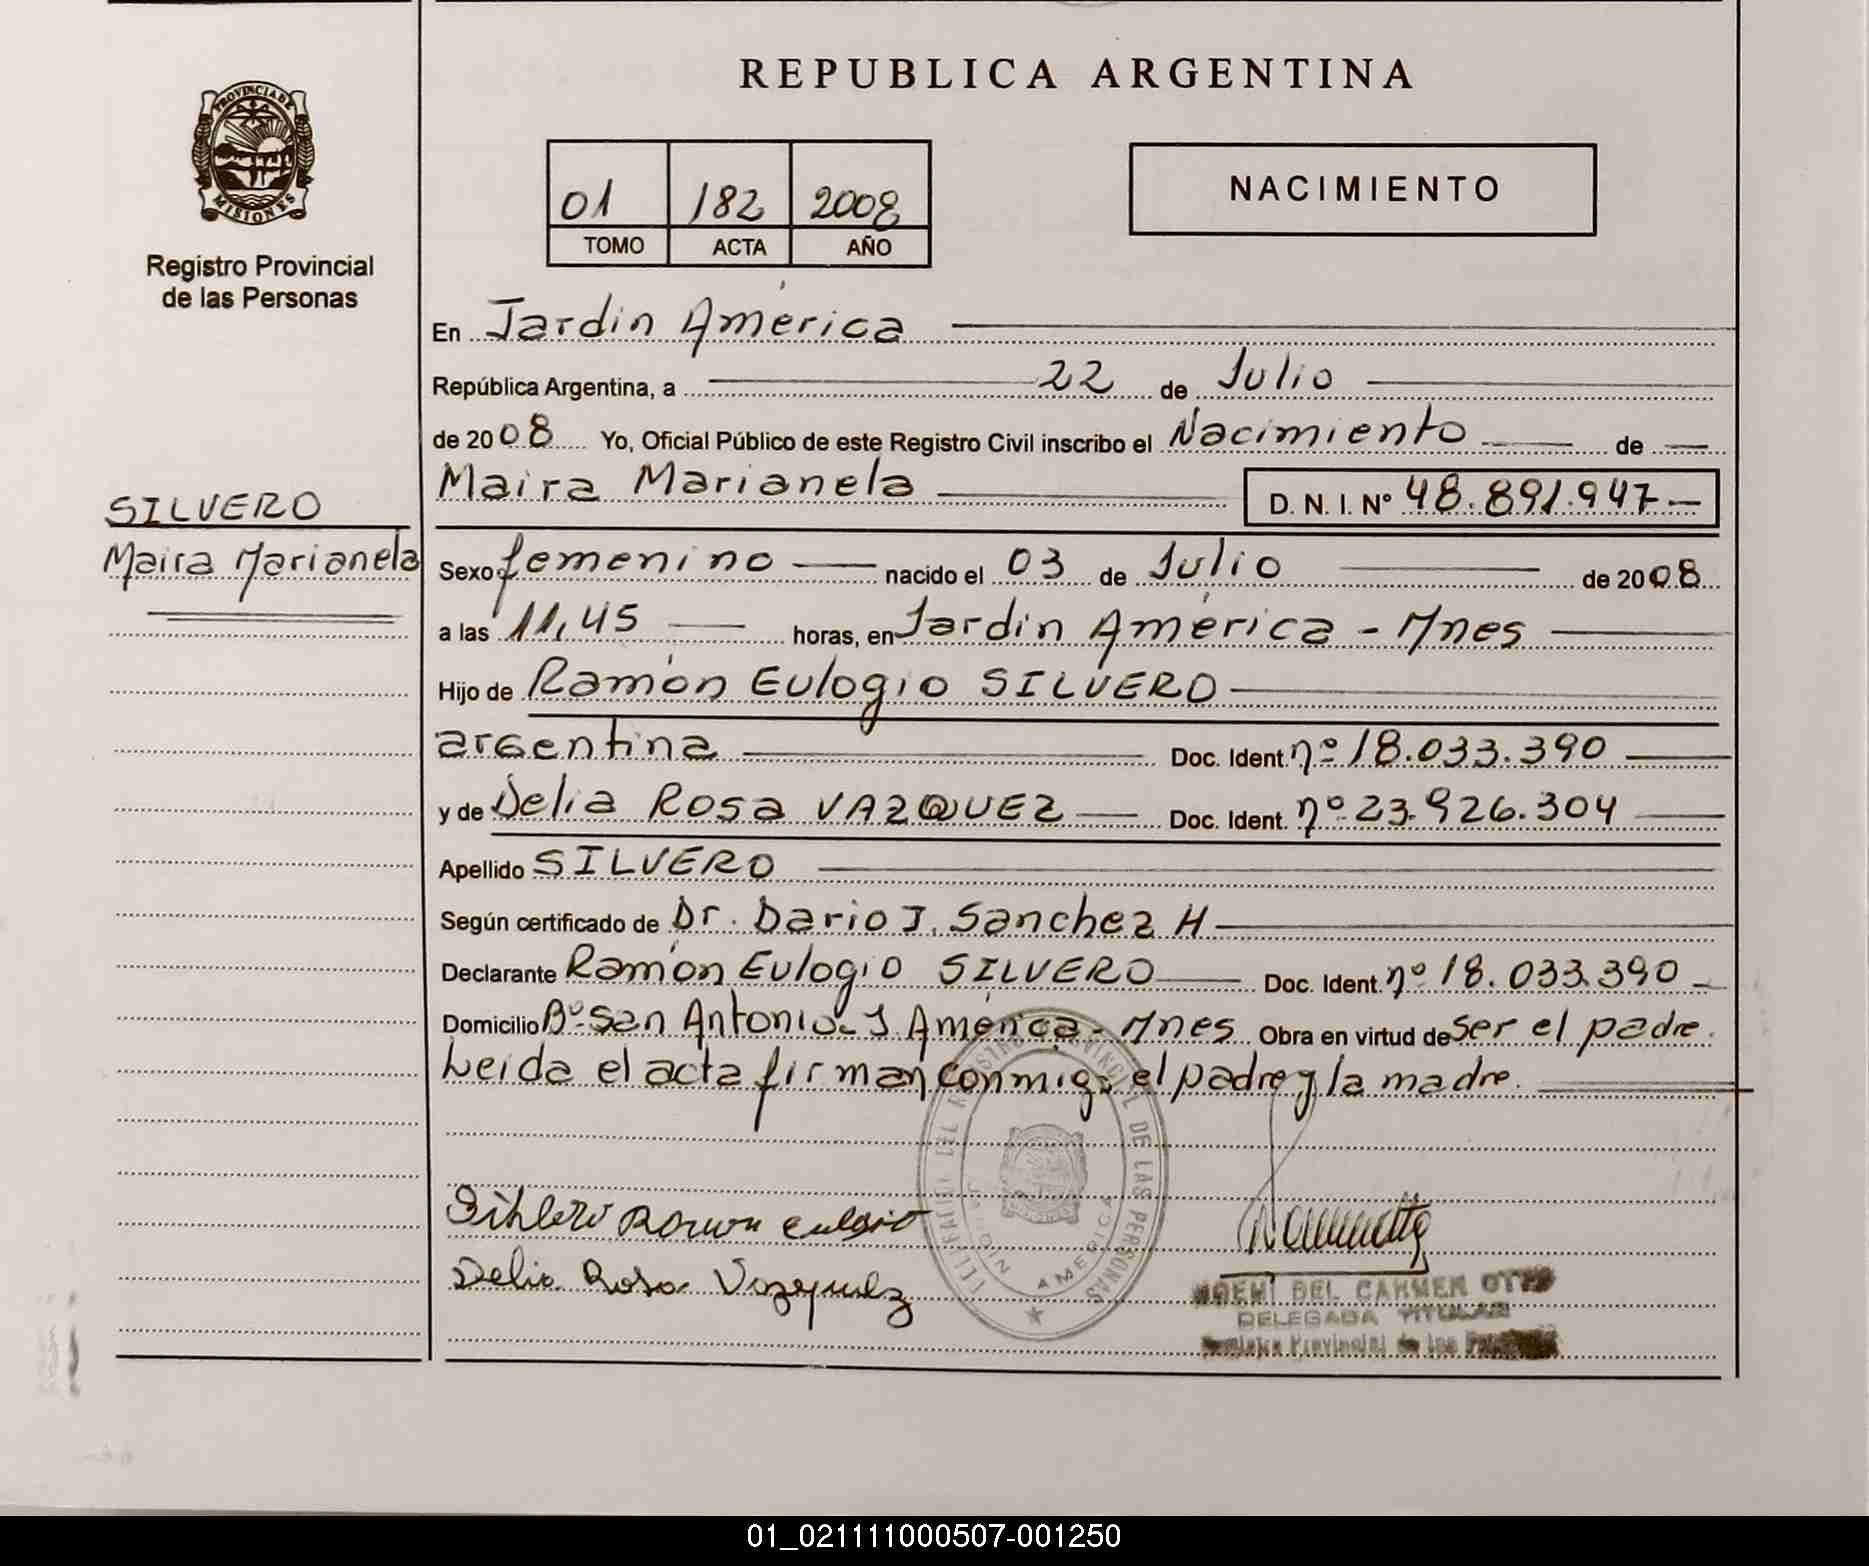 REPUBLICA ARGENTINA
PROVINCIA DE MISIONES
Registro Provincial
de las Personas
01 182 2008
TOMO ACTA AÑO
NACIMIENTO
SILVERO
Maira Marianela
En Jardín América
República Argentina, a 22 de Julio
de 2008 Yo, Oficial Público de este Registro Civil inscribo el Nacimiento de
Maira Marianela D. N. I. Nº 48.891.947
Sexo femenino nacido el 03 de Julio de 2008
a las 11,45 horas, en Jardín América - Mnes
Hijo de Ramón Eulogio SILVERO
argentina Doc. Ident nº 18.033.390
y de Delia Rosa VAZQUEZ Doc. Ident. nº 23.926.304
Apellido SILVERO
Según certificado de Dr. Dario J. Sanchez H
Declarante Ramón Eulogio SILVERO Doc. Ident. nº 18.033.390
Domicilio Bº San Antonio - J. América - Mnes Obra en virtud de ser el padre.
Leida el acta firman conmigo el padre y la madre.
DEL REGISTRO PROVINCIAL DE LAS PERSONAS
JARDIN AMERICA
Silvero Ramon eulogio
Delia Rosa Vazquez
NOEMI DEL CARMEN
DELEGADA TITULAR
Registro Provincial de las Personas
01_021111000507-001250